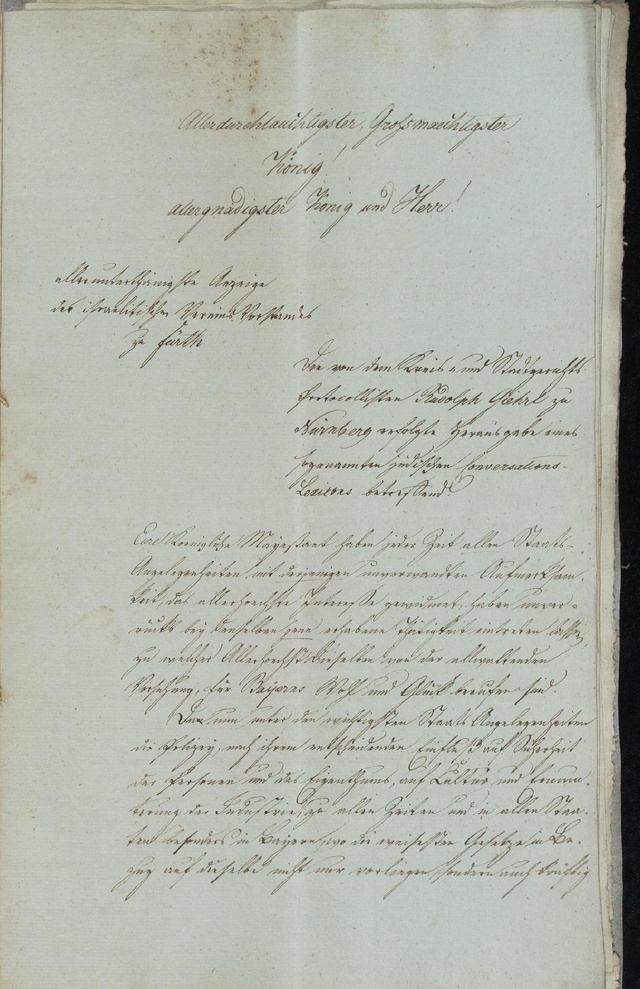 Allerdurchlauchtigster, Grossmaechtigster
König!
allergnädigster König und Herr!
allerunterthänigste Anzeige
des israelitischen Vereins Vorstandes
zu Fürth
Die von dem Kreis- und Stadtgerichts
Protocollisten Rudolph Giehrl zu
Nürnberg erfolgte Herausgabe eines
sogenannten jüdischen Conversations-
Lexicons betreffend.
Eure Koenigliche Majestaet haben jeder Zeit allen Staats-
Angelegenheiten mit derjenigen unverwandten Aufmerksam-
keit, das allerhoechste Interesse gewidmet, haben unver-
rückt bey denselben jene erhabene Thätigkeit eintreten lassen,
zu welcher Allerhoechstdieselben von der allwaltenden
Vorsehung, für Bayerns Wohl und Glück berufen sind.
Da nun unter den wichtigsten Staats Angelegenheiten
die Polizey, nach ihrem entscheidenden Einfluß auf Sicherheit
der Personen und des Eigenthums, auf Cultur und
der Industrie, zu allen Zeiten und in allen Staa-
ten besonders in Bayern, wo die weisesten Gesetze in Be-
zug auf dieselbe nicht nur vorliegen, sondern auch kräftig